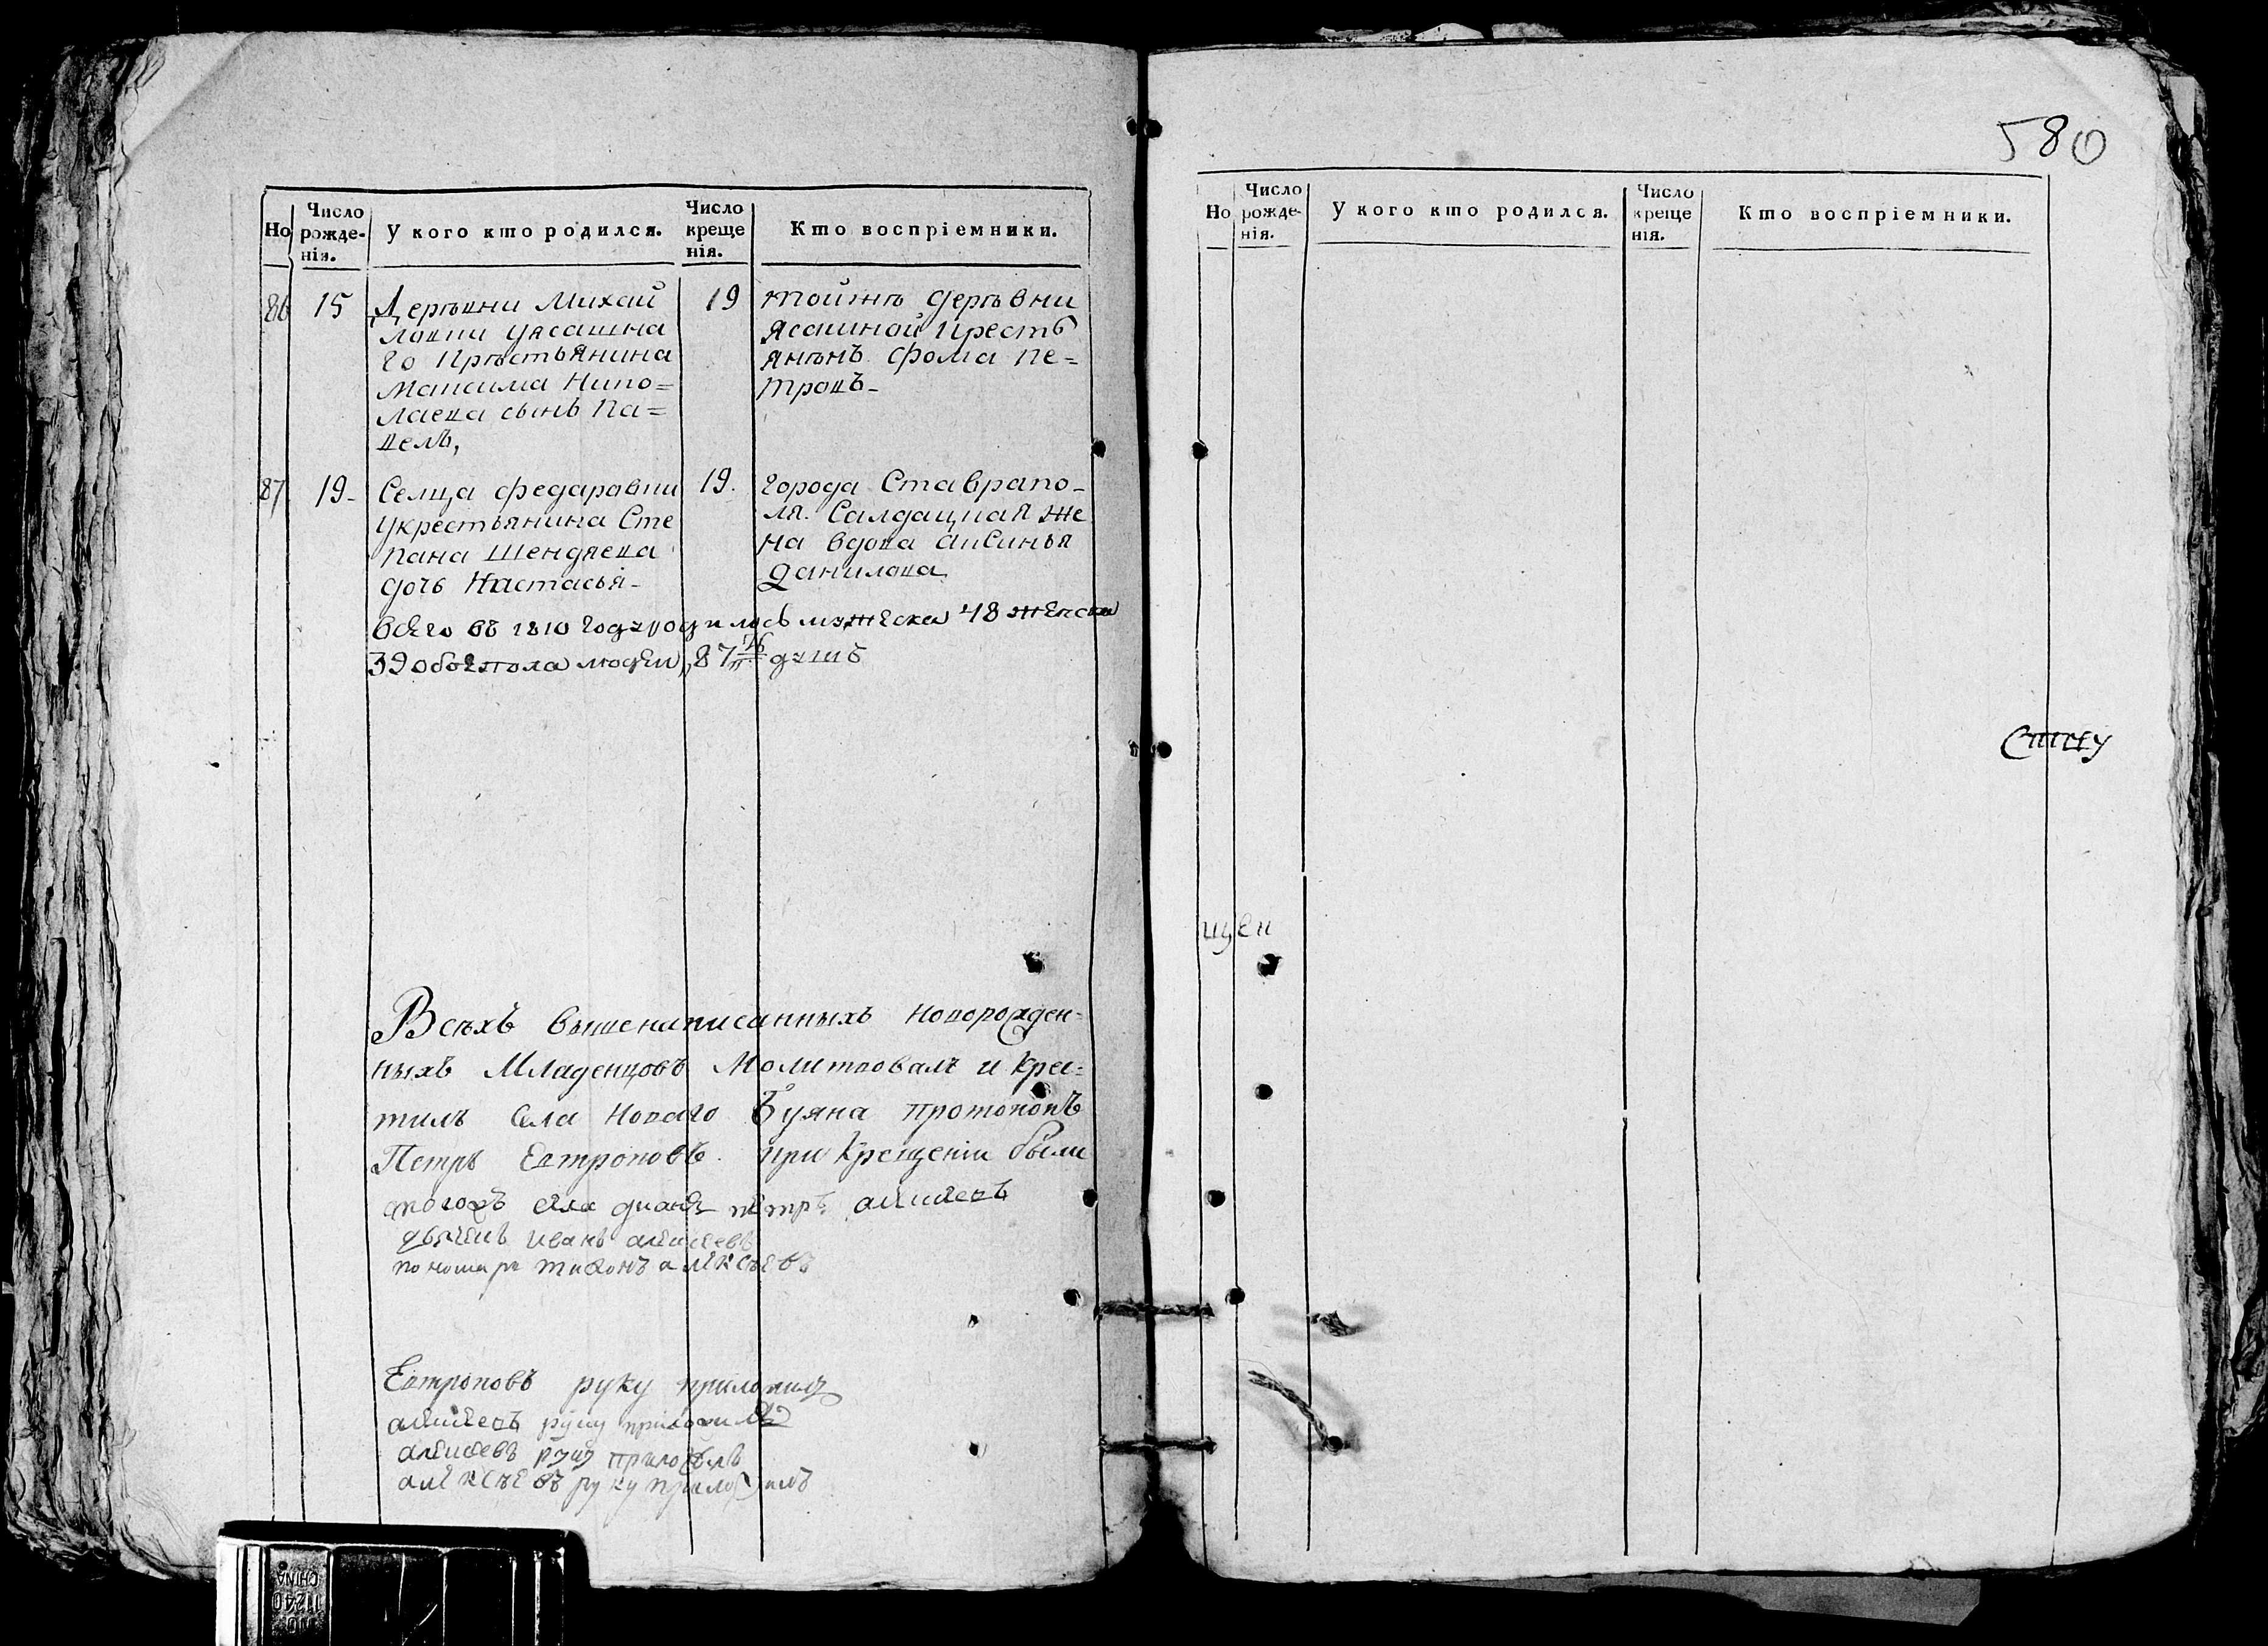 580
Но
Число рожденія.
У кого кто родился.
Число крещенія.
Кто воспріемники.
86
15
Деревни Михай
ловки уясашна
го крѣстьянина
Максима Нико=
лаева сынъ Па=
велъ,
19
тойжъ деревни
ясашной кресть
янѣнъ Фома Пе=
тровъ-
87
19-
Селца Федаравки
укрестьянина Сте
пана Шендяева
дочь Настасья-
19.
города Ставрапо-
ля. Салдацкая же
на вдова Аксинья
Данилова
всего въ 1810 году родилось мужеска 48 женска
39 обоего пола людей 87 душъ
Всѣхъ вышенаписанныхъ новорожден-
ныхъ Младенцовъ Молитвовалъ и крес-
тилъ Села Новаго Буяна протопопъ
Петръ Евтроповъ. при Крещеніи были
тогожъ села диаконъ петръ алексеевъ
дьячекъ иванъ алексеевъ
пономарь тихонъ алексѣевъ
Евтроповъ руку приложилъ
алексеевъ руку приложилъ
алексеевъ руку приложилъ
алексѣевъ руку приложилъ
Но
Число рожденія.
У кого кто родился.
Число крещенія.
Кто воспріемники.
щен
NO
11240
CHINA